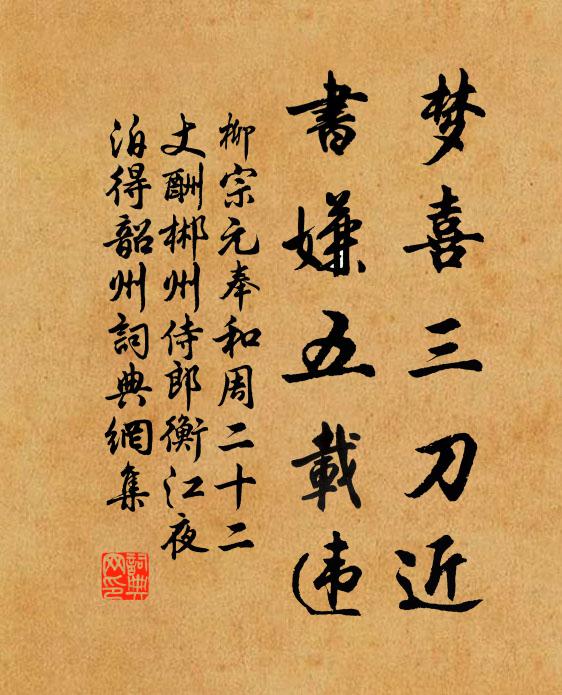 梦喜三刀近
書嫌五載违
柳宗元奉和周二十二
丈酬郴州侍郎衡江夜
泊得韶州詞典網集
詞典
网印